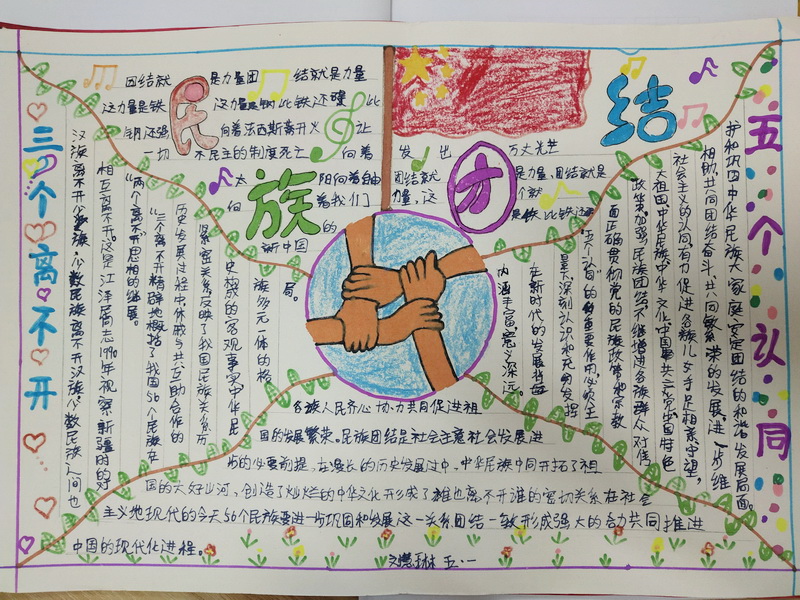 民族团结
三个离不开
五个认同
团结就是力量团结就是力量
这力量是铁 这力量是钢 比铁还硬 比
钢还强 向着法西斯蒂开火 让
一切不民主的制度死亡 向着
太阳向着自由
向着我们
新中国的
发出万丈光芒
团结就是力量,团结就是
力量,这个就
是铁 比铁还
汉族离不开少数民族,少数民族离不开汉族,少数民族之间也
相互离不开。这是江泽民同志1990年视察新疆时的对
"两个离不开"思想的继展。
"三个离不开精辟地概括了我国56个民族在
历史发展过程中休戚与共互助合作的
紧密关系反映了我国民族关系历
史构成的客观事实中华民
族多元一体的格
局。
护和巩固中华民族大家庭安定团结的和谐发展局面。
相助,共同团结奋斗、共同繁荣的发展。进一步维
社会主义的认同,有力促进各族儿女手足相亲守望,
大祖国、中华民族、中华文化、中国共产党、中国特色
政策,加强民族团结,不继增进各族群众对伟
面正确贯彻党的民族政策和宗教
"五个认同"的重要作用,必须全
景下深刻认识和充分发挥
在新时代的发展背
内涵丰富,意义深远。
各族人民齐心协力共同促进祖
国的发展繁荣。民族团结是社会主意社会发展进
步的必要前提,在漫长的历史发展过中,中华民族中同开拓了祖
国的大好山河,创造了灿烂的中华文化,形成了谁也离不开谁的密切关系在社会
主义地现代的今天56个民族要进一步巩固和发展这一关系团结一致形成强大的合力共同推进
中国的现代化进程。
五·一